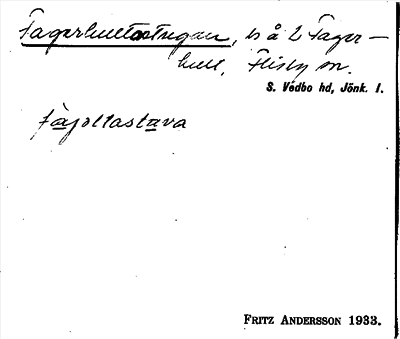 Fagerhultastugan, ls å 2 Fager-
hult, Flisby sn.
S. Vedbo hd, Jönk. l.
fàjoltastàva
FRITZ ANDERSSON 1933.